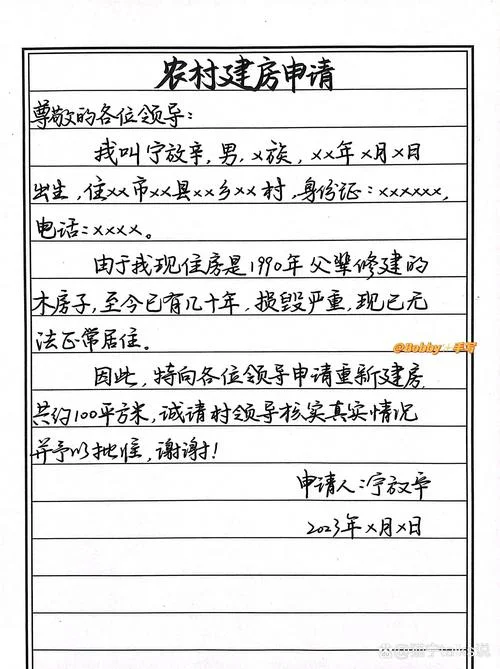 农村建房申请
尊敬的各位领导:
我叫宁放辛,男,x族,xx年x月x日
出生,住xx市xx县xx乡xx村,身份证:xxxxxx,
电话:xxxx。
由于我现住房是1990年父辈修建的
木房子,至今已有几十年,损毁严重,现已无
法正常居住。
@Bobby 手写
因此,特向各位领导申请重新建房,
共约100平方米,诚请村领导核实真实情况
并予以批准,谢谢!
申请人:宁放辛
2023年x月x日